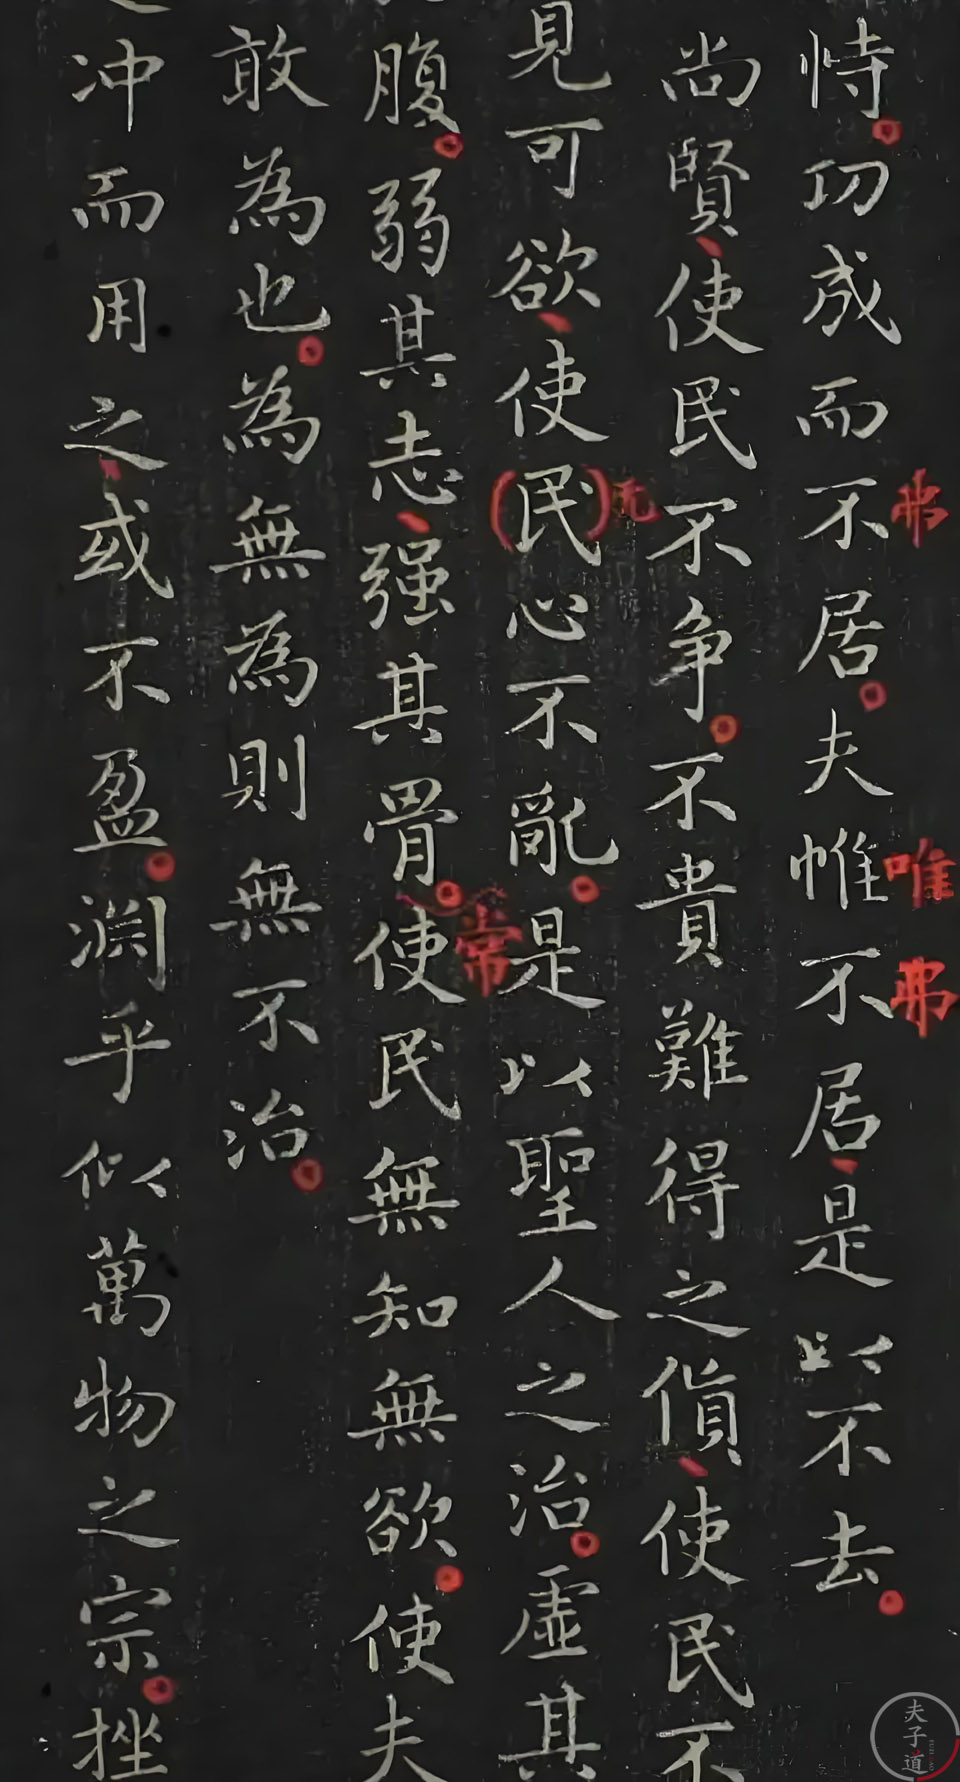 恃功成而不居夫惟不居是以不去
尚賢使民不争不貴難得之貨使民不
見可欲使民心不亂是以聖人之治虛其
腹弱其志强其骨使民無知無欲使夫
敢為也為無為則無不治
冲而用之或不盈淵乎似萬物之宗挫
弗
唯
弗
无
常
夫子道